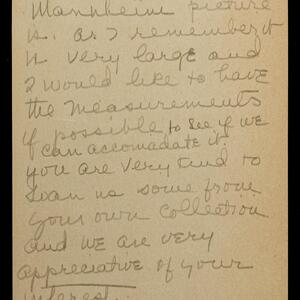 Mannheim picture
is. as I remember it
is very large and
I would like to have
the measurements
if possible to see if we
can accomadate it.
you are very kind to
loan us some from
your own collection
and we are very
appreciative of your
interest.